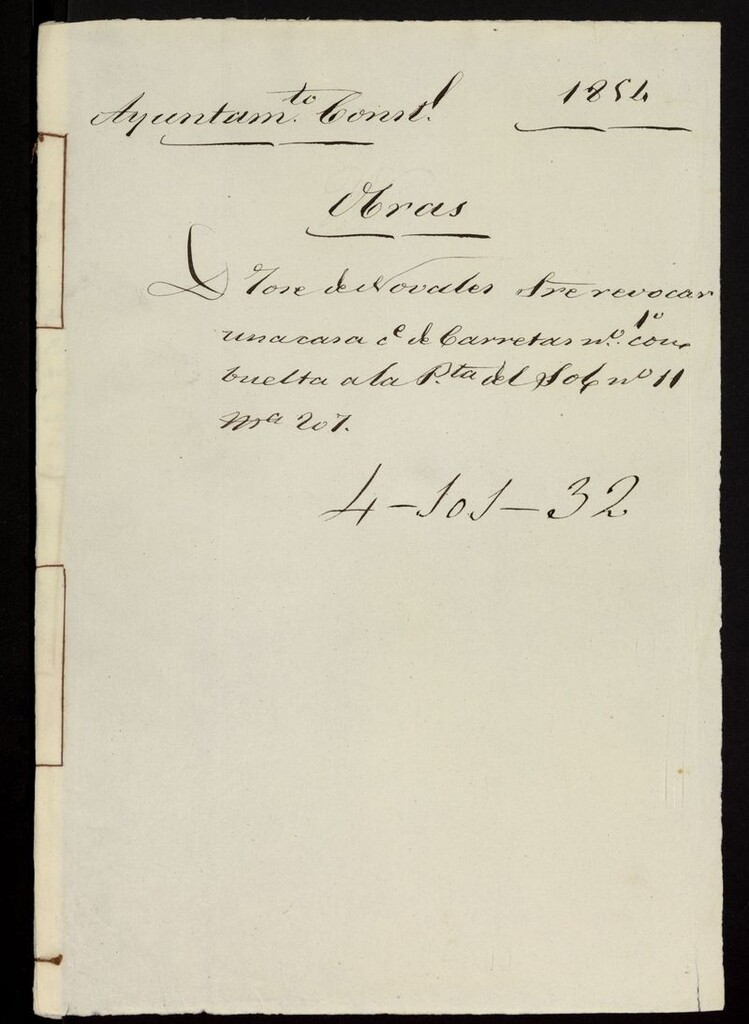 Ayuntam.to Const.l 1854
Obras
D Jose de Novales Sre revocar
una casa c.e de Carretas n.o 1o con
buelta a la P.ta del Sol no 11
Mza 207.
4-101-32